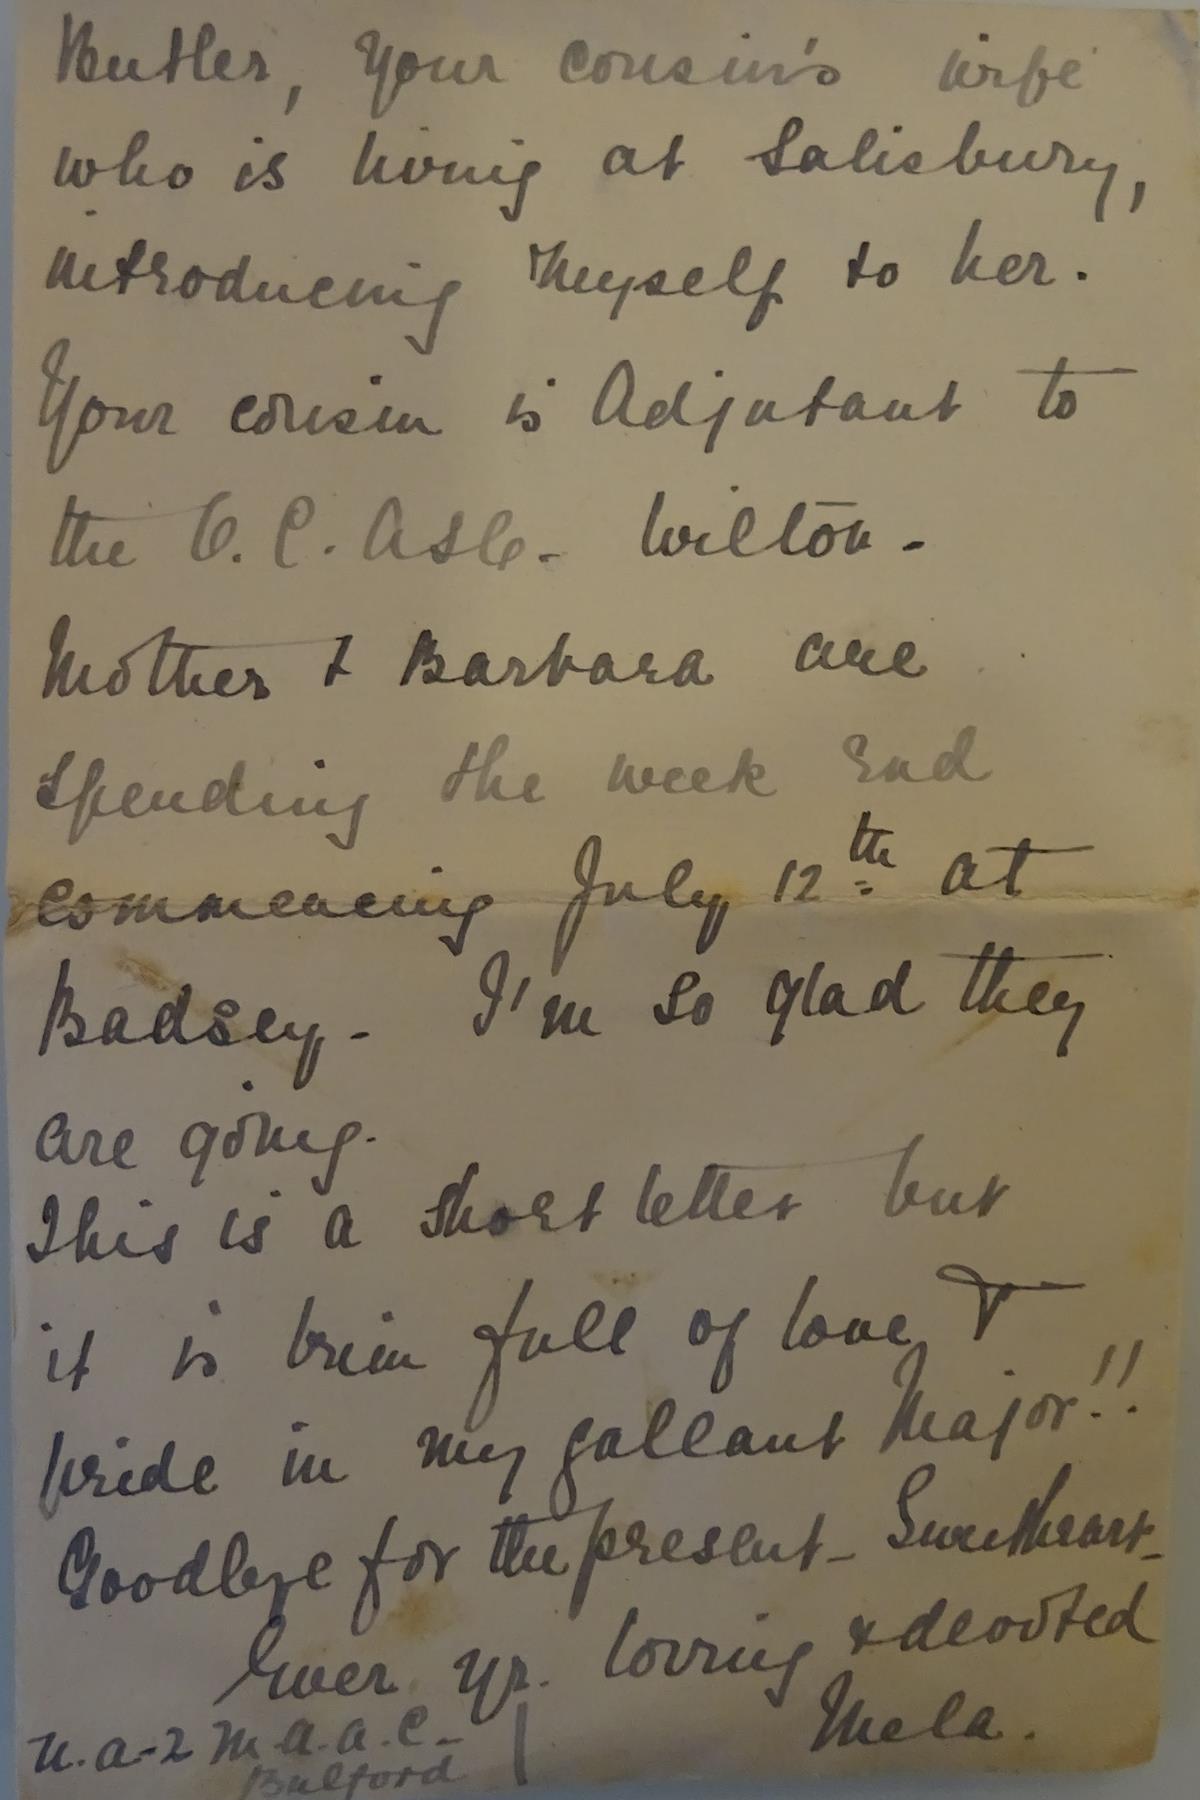 Butler, your cousin's wife
who is living at Salisbury,
introducing myself to her.
Your cousin is Adjutant to
the O.C. ASC. Wilton -
Mother & Barbara are
spending the week end
commencing July 12th at
Badsey - I'm so glad they
are going.
This is a short letter but
it is brim full of love &
pride in my gallant Major!!
Goodbye for the present - Sweetheart -
Ever yr. loving & devoted
Mela.
M.A.A.C. -
Bulford